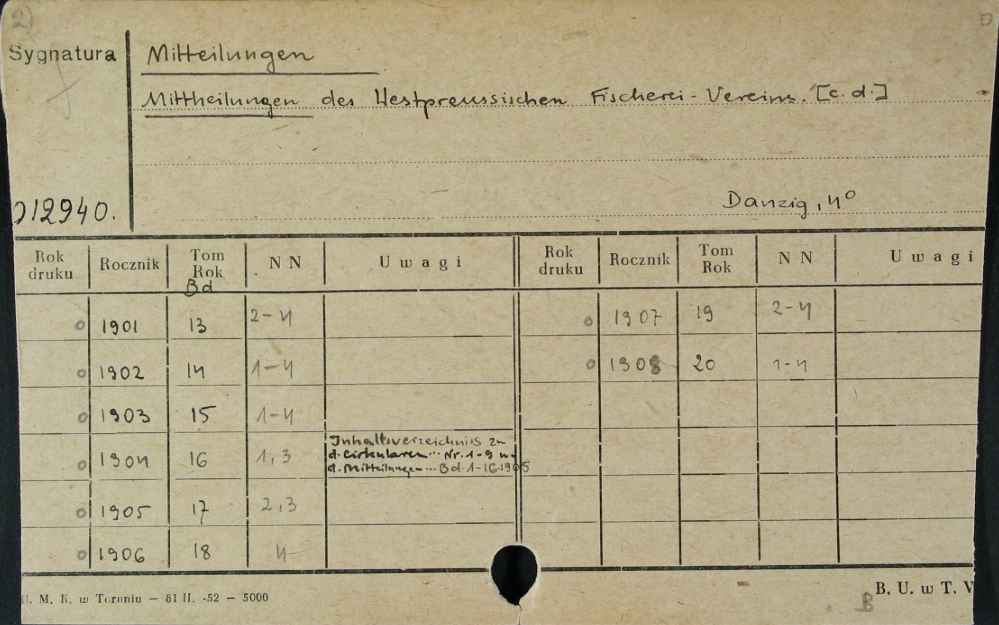 2)
Sygnatura
Mitteilungen
Mittheilungen des Westpreussischen Fischerei-Vereins. [c. d.]
012940.
Danzig, 4°
Rok druku Rocznik Tom Rok Bd N N U w a g i Rok druku Rocznik Tom Rok N N U w a g i
o 1901 13 2-4 o 1907 19 2-4
o 1902 14 1-4 o 1908 20 1-4
o 1903 15 1-4
o 1904 16 1,3 Inhaltsverzeichnis zu
d. Cirkularen... Nr. 1-9 u.
d. Mitteilungen... Bd. 1-16.1905
o 1905 17 2,3
o 1906 18 4
U. M. K. w Toruniu — 81 II. -52 — 5000
B. U. w T. V